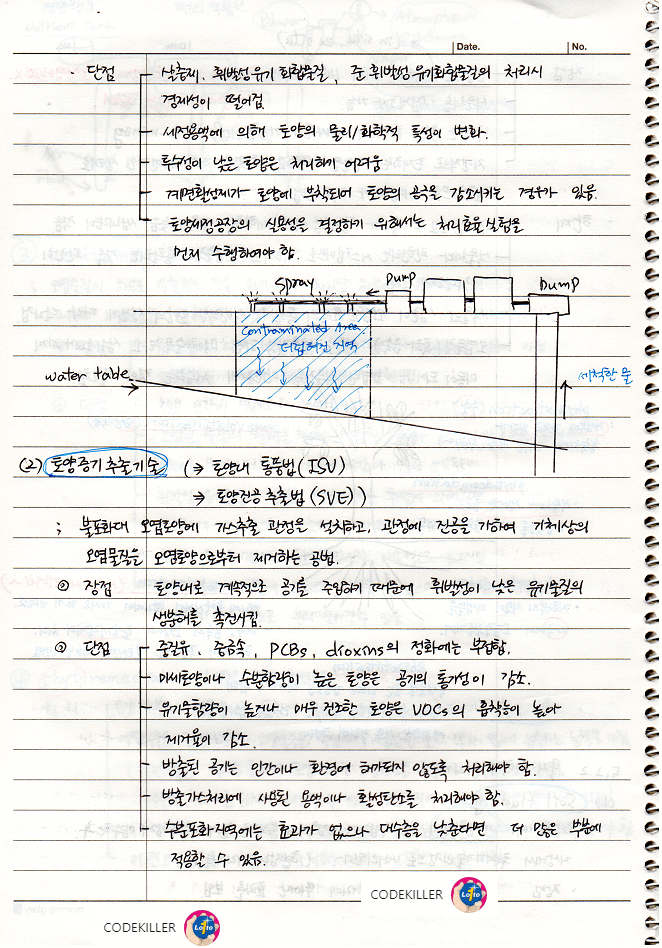 Date.
No.
· 단점 - 살충제, 휘발성 유기 화합물질, 준 휘발성 유기화합물질의 처리시
경제성이 떨어짐
- 세정용액에 의해 토양의 물리/화학적 특성이 변화.
- 투수성이 낮은 토양은 처리하기 어려움
- 계면활성제가 토양에 부착되어 토양의 공극을 감소시키는 경우가 있음.
- 토양세정공장의 실용성을 결정하기 위해서는 처리효율 실험을
먼저 수행하여야 함.
spray
pump
pump
contraminated Area
더럽혀진 지역
water table
세척한 물
(2) 토양증기 추출기술 (→ 토양내 통풍법(ISV)
→ 토양진공 추출법 (SVE))
; 불포화대 오염토양에 가스추출 관정을 설치하고, 관정에 진공을 가하여 기체상의
오염물질을 오염토양으로부터 제거하는 공법.
① 장점 토양내로 계속적으로 공기를 주입하기 때문에 휘발성이 낮은 유기물질의
생분해를 촉진시킴.
② 단점 - 중질유, 중금속, PCBs, dioxins의 정화에는 부적합.
- 미세토양이나 수분함량이 높은 토양은 공기의 통기성이 감소.
- 유기물함량이 높거나 매우 건조한 토양은 VOCs의 흡착능이 높아
제거율이 감소.
- 방출된 공기는 인간이나 환경에 해가되지 않도록 처리해야 함.
- 방출가스처리에 사용된 용액이나 활성탄소를 처리해야 함.
- 수분포화지역에는 효과가 없으나 대수층을 낮춘다면 더 많은 부분에
적용할 수 있음.
CODEKILLER Lotto
CODEKILLER Lotto